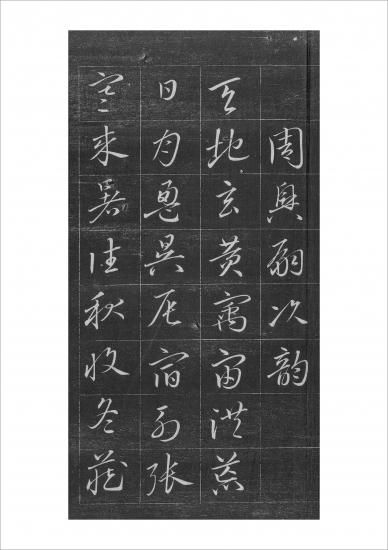 周興嗣次韵
天地玄黄宇宙洪荒
日月盈昃辰宿列张
寒来暑往秋收冬藏